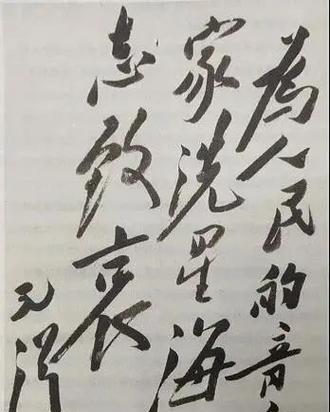 為人民的音
家洗星海
志致哀
毛泽